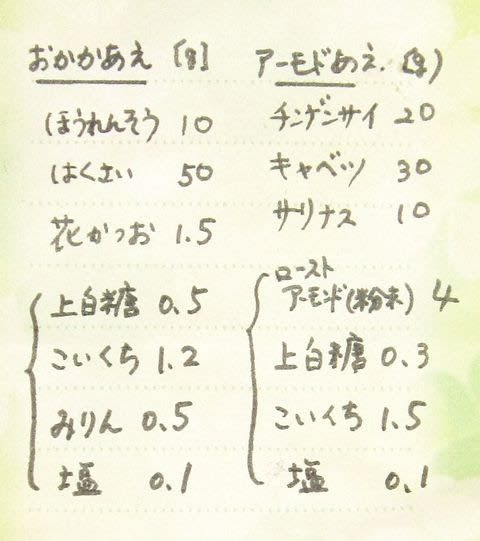 おかかあえ
ほうれんそう 10
はくさい 50
花かつお 1.5
上白糖 0.5
こいくち 1.2
みりん 0.5
塩 0.1
アーモドあえ.
チンゲンサイ 20
キャベツ 30
サリナス 10
ロースト
アーモンド(粉末) 4
上白糖 0.3
こいくち 1.5
塩 0.1